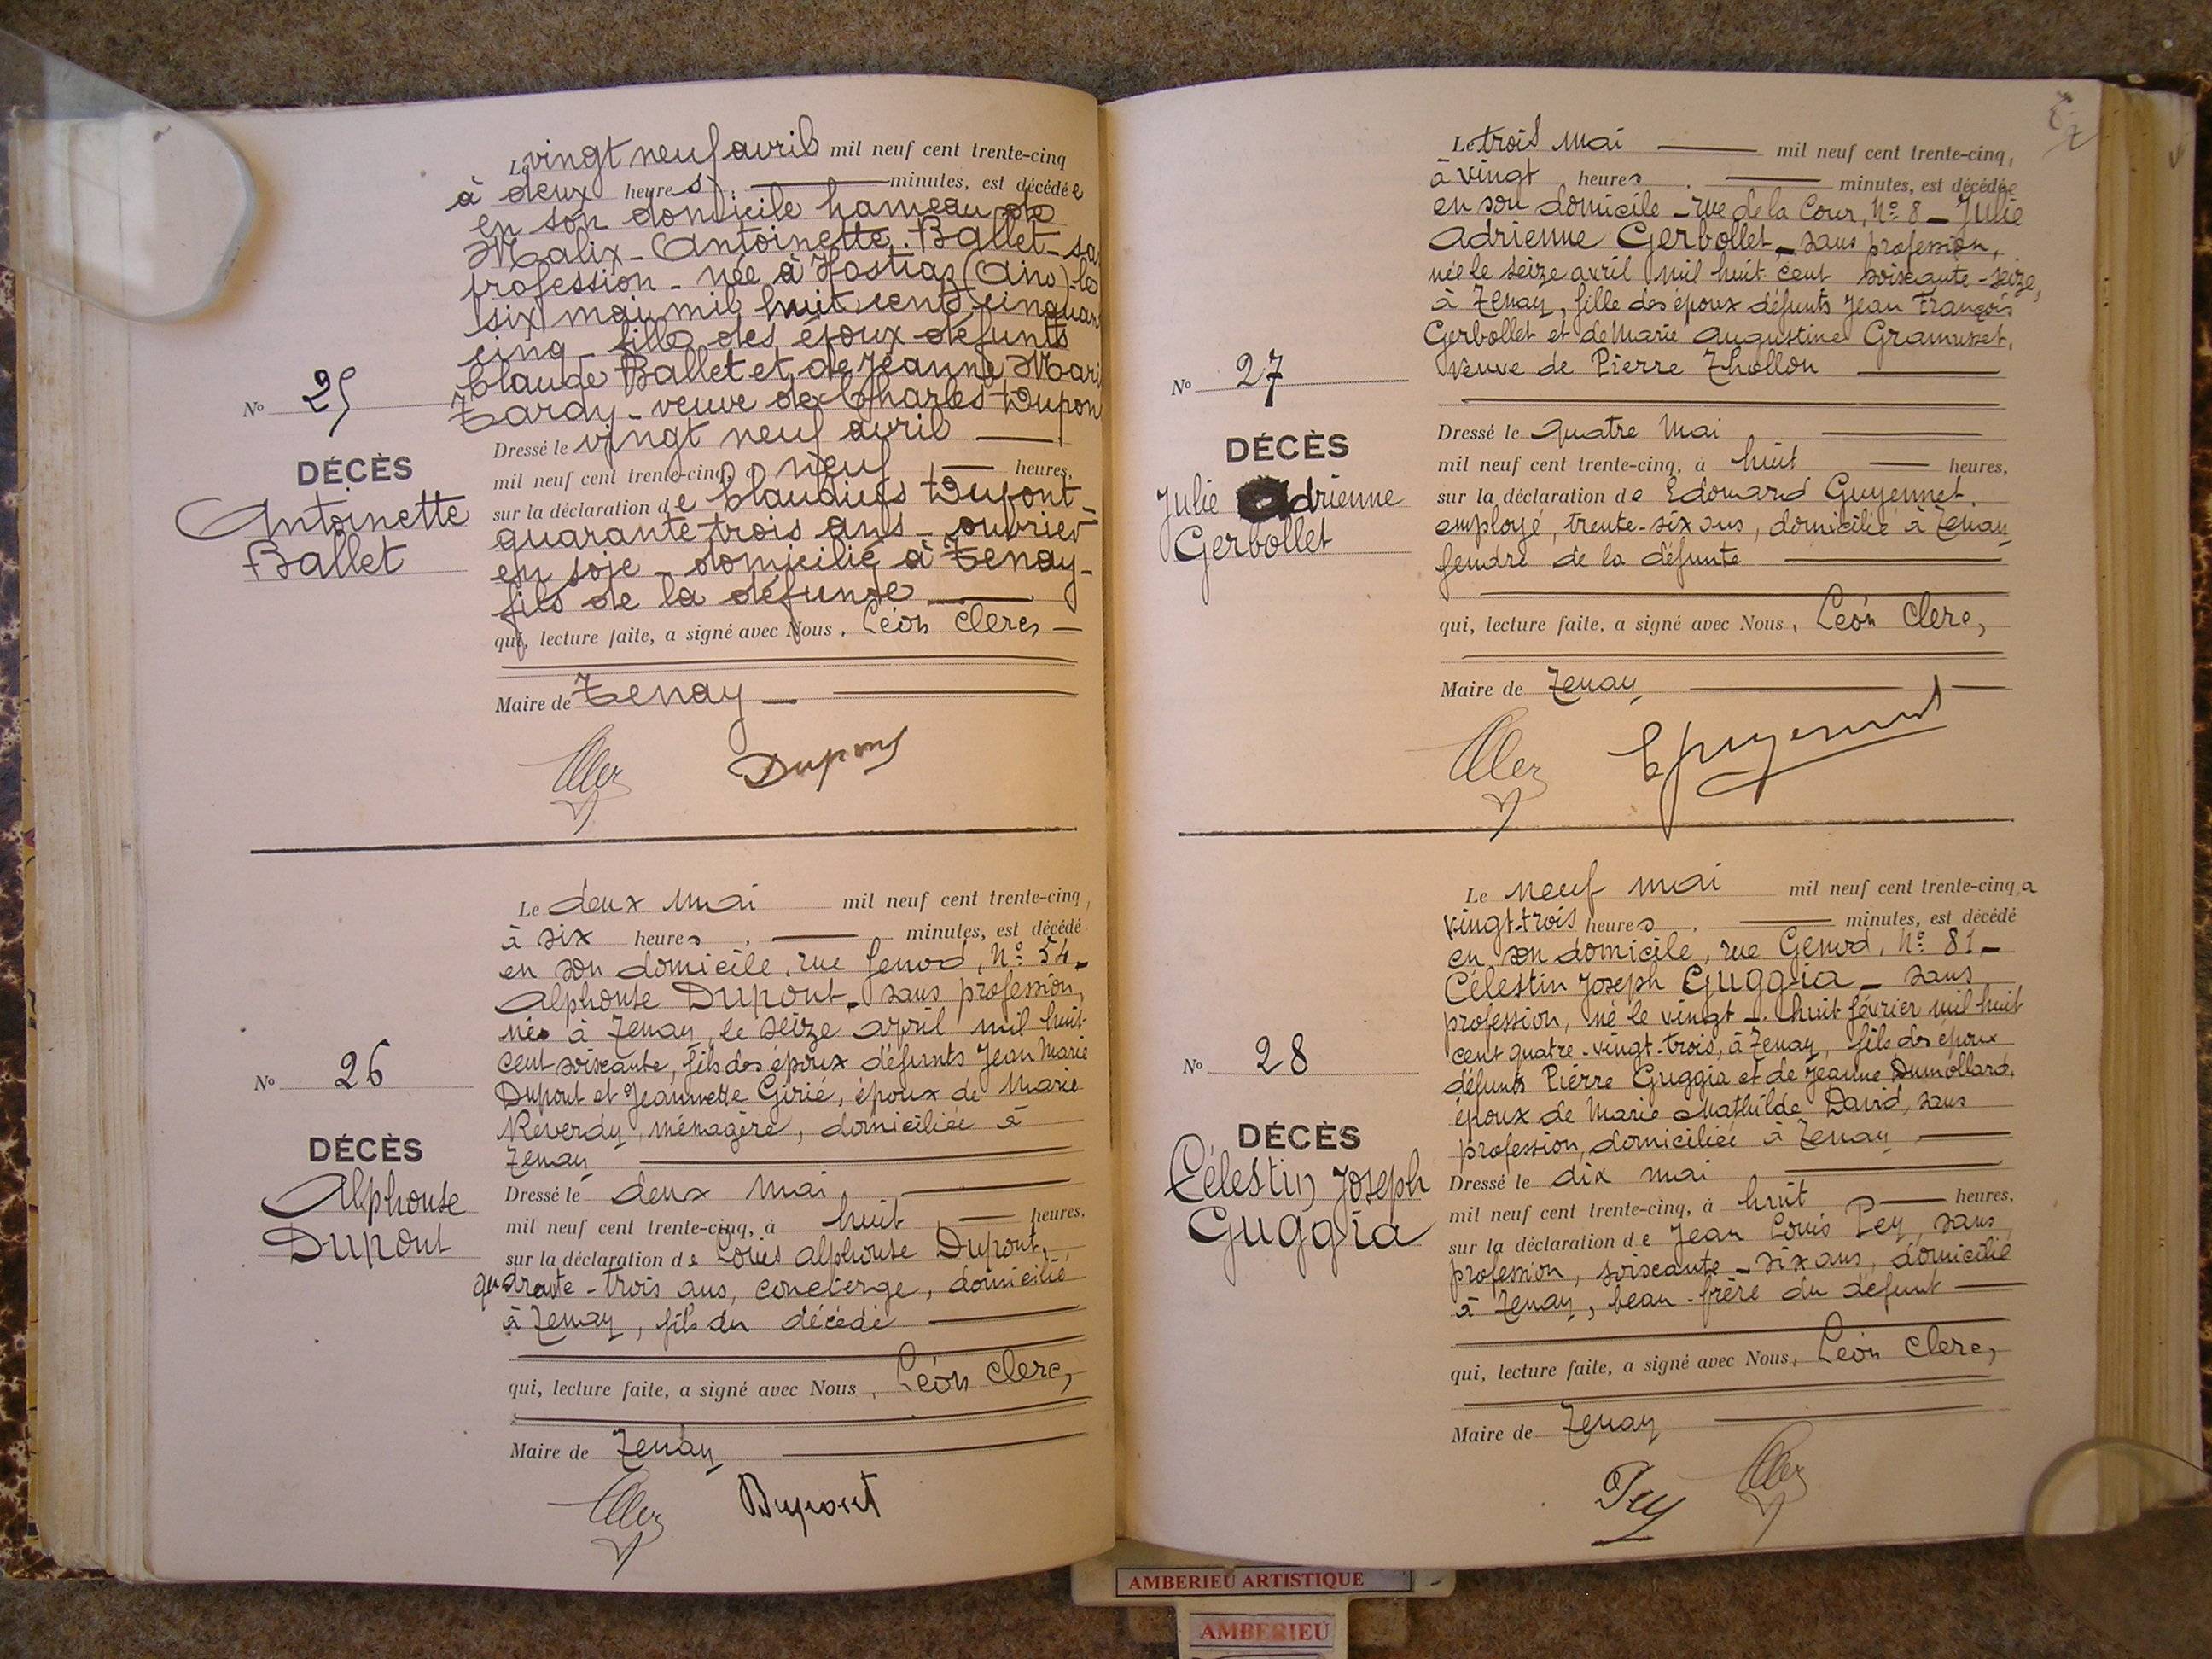 Le vingt neuf avril mil neuf cent trente-cinq
à deux heures . — minutes, est décédée
en son domicile hameau de
Malix - Antoinette Ballet - sa
profession - née à Hostias (Ain) le
six mai mil huit cent cinquan
cinq - fille des époux défunts
Claude Ballet et de Jeanne Mari
Tardy - veuve de Charles Dupon
No 25
Dressé le vingt neuf avril —
mil neuf cent trente-cinq, à neuf — heures,
DÉCÈS
Antoinette
Ballet
sur la déclaration de Claudius Dupont -
quarante-trois ans - ouvrier
en soie - domicilié à Tenay -
fils de la défunte —
qui, lecture faite, a signé avec Nous, Léon Clerc —
Maire de Tenay —
Dupont
Le deux mai — mil neuf cent trente-cinq,
à six heures . — minutes, est décédé
en son domicile, rue Genod, No: 54 -
Alphonse Dupont - sans profession,
né à Tenay, le seize avril mil huit
cent soixante, fils des époux défunts Jean Marie
Dupont et Jeannette Girié, époux de Marie
Reverdy, ménagère, domiciliée à
Tenay —
No 26
DÉCÈS
Alphonse
Dupont
Dressé le deux mai —
mil neuf cent trente-cinq, à huit — heures,
sur la déclaration de Louis Alphonse Dupont,
quarante-trois ans, concierge, domicilié
à Tenay, fils du décédé —
qui, lecture faite, a signé avec Nous, Léon Clerc,
Maire de Tenay —
Dupont
Le trois mai — mil neuf cent trente-cinq,
à vingt heures . — minutes, est décédée
en son domicile - rue de la Cour, No: 8 - Julie
Adrienne Gerbollet - sans profession,
née le seize avril mil huit cent soixante-seize,
à Tenay, fille des époux défunts Jean François
Gerbollet et de Marie Augustine Gramusset,
veuve de Pierre Thollon —
No 27
DÉCÈS
Julie Adrienne
Gerbollet
Dressé le quatre mai —
mil neuf cent trente-cinq, à huit — heures,
sur la déclaration de Edouard Guyennet,
employé, trente-six ans, domicilié à Tenay
gendre de la défunte —
qui, lecture faite, a signé avec Nous, Léon Clerc,
Maire de Tenay —
Le neuf mai mil neuf cent trente-cinq à
vingt-trois heures . — minutes, est décédé
en son domicile, rue Genod, No: 81 -
Célestin Joseph Guggia - sans
profession, né le vingt-huit février mil huit
cent quatre-vingt-trois, à Tenay, fils des époux
défunts Pierre Guggia et de Jeanne Dumollard,
époux de Marie Mathilde David, sans
profession, domiciliée à Tenay —
No 28
DÉCÈS
Célestin Joseph
Guggia
Dressé le dix mai —
mil neuf cent trente-cinq, à huit — heures,
sur la déclaration de Jean Louis Pey, sans
profession, soixante-six ans, domicilié
à Tenay, beau-frère du défunt —
qui, lecture faite, a signé avec Nous, Léon Clerc,
Maire de Tenay —
Pey
AMBERIEU ARTISTIQUE
AMBERIEU